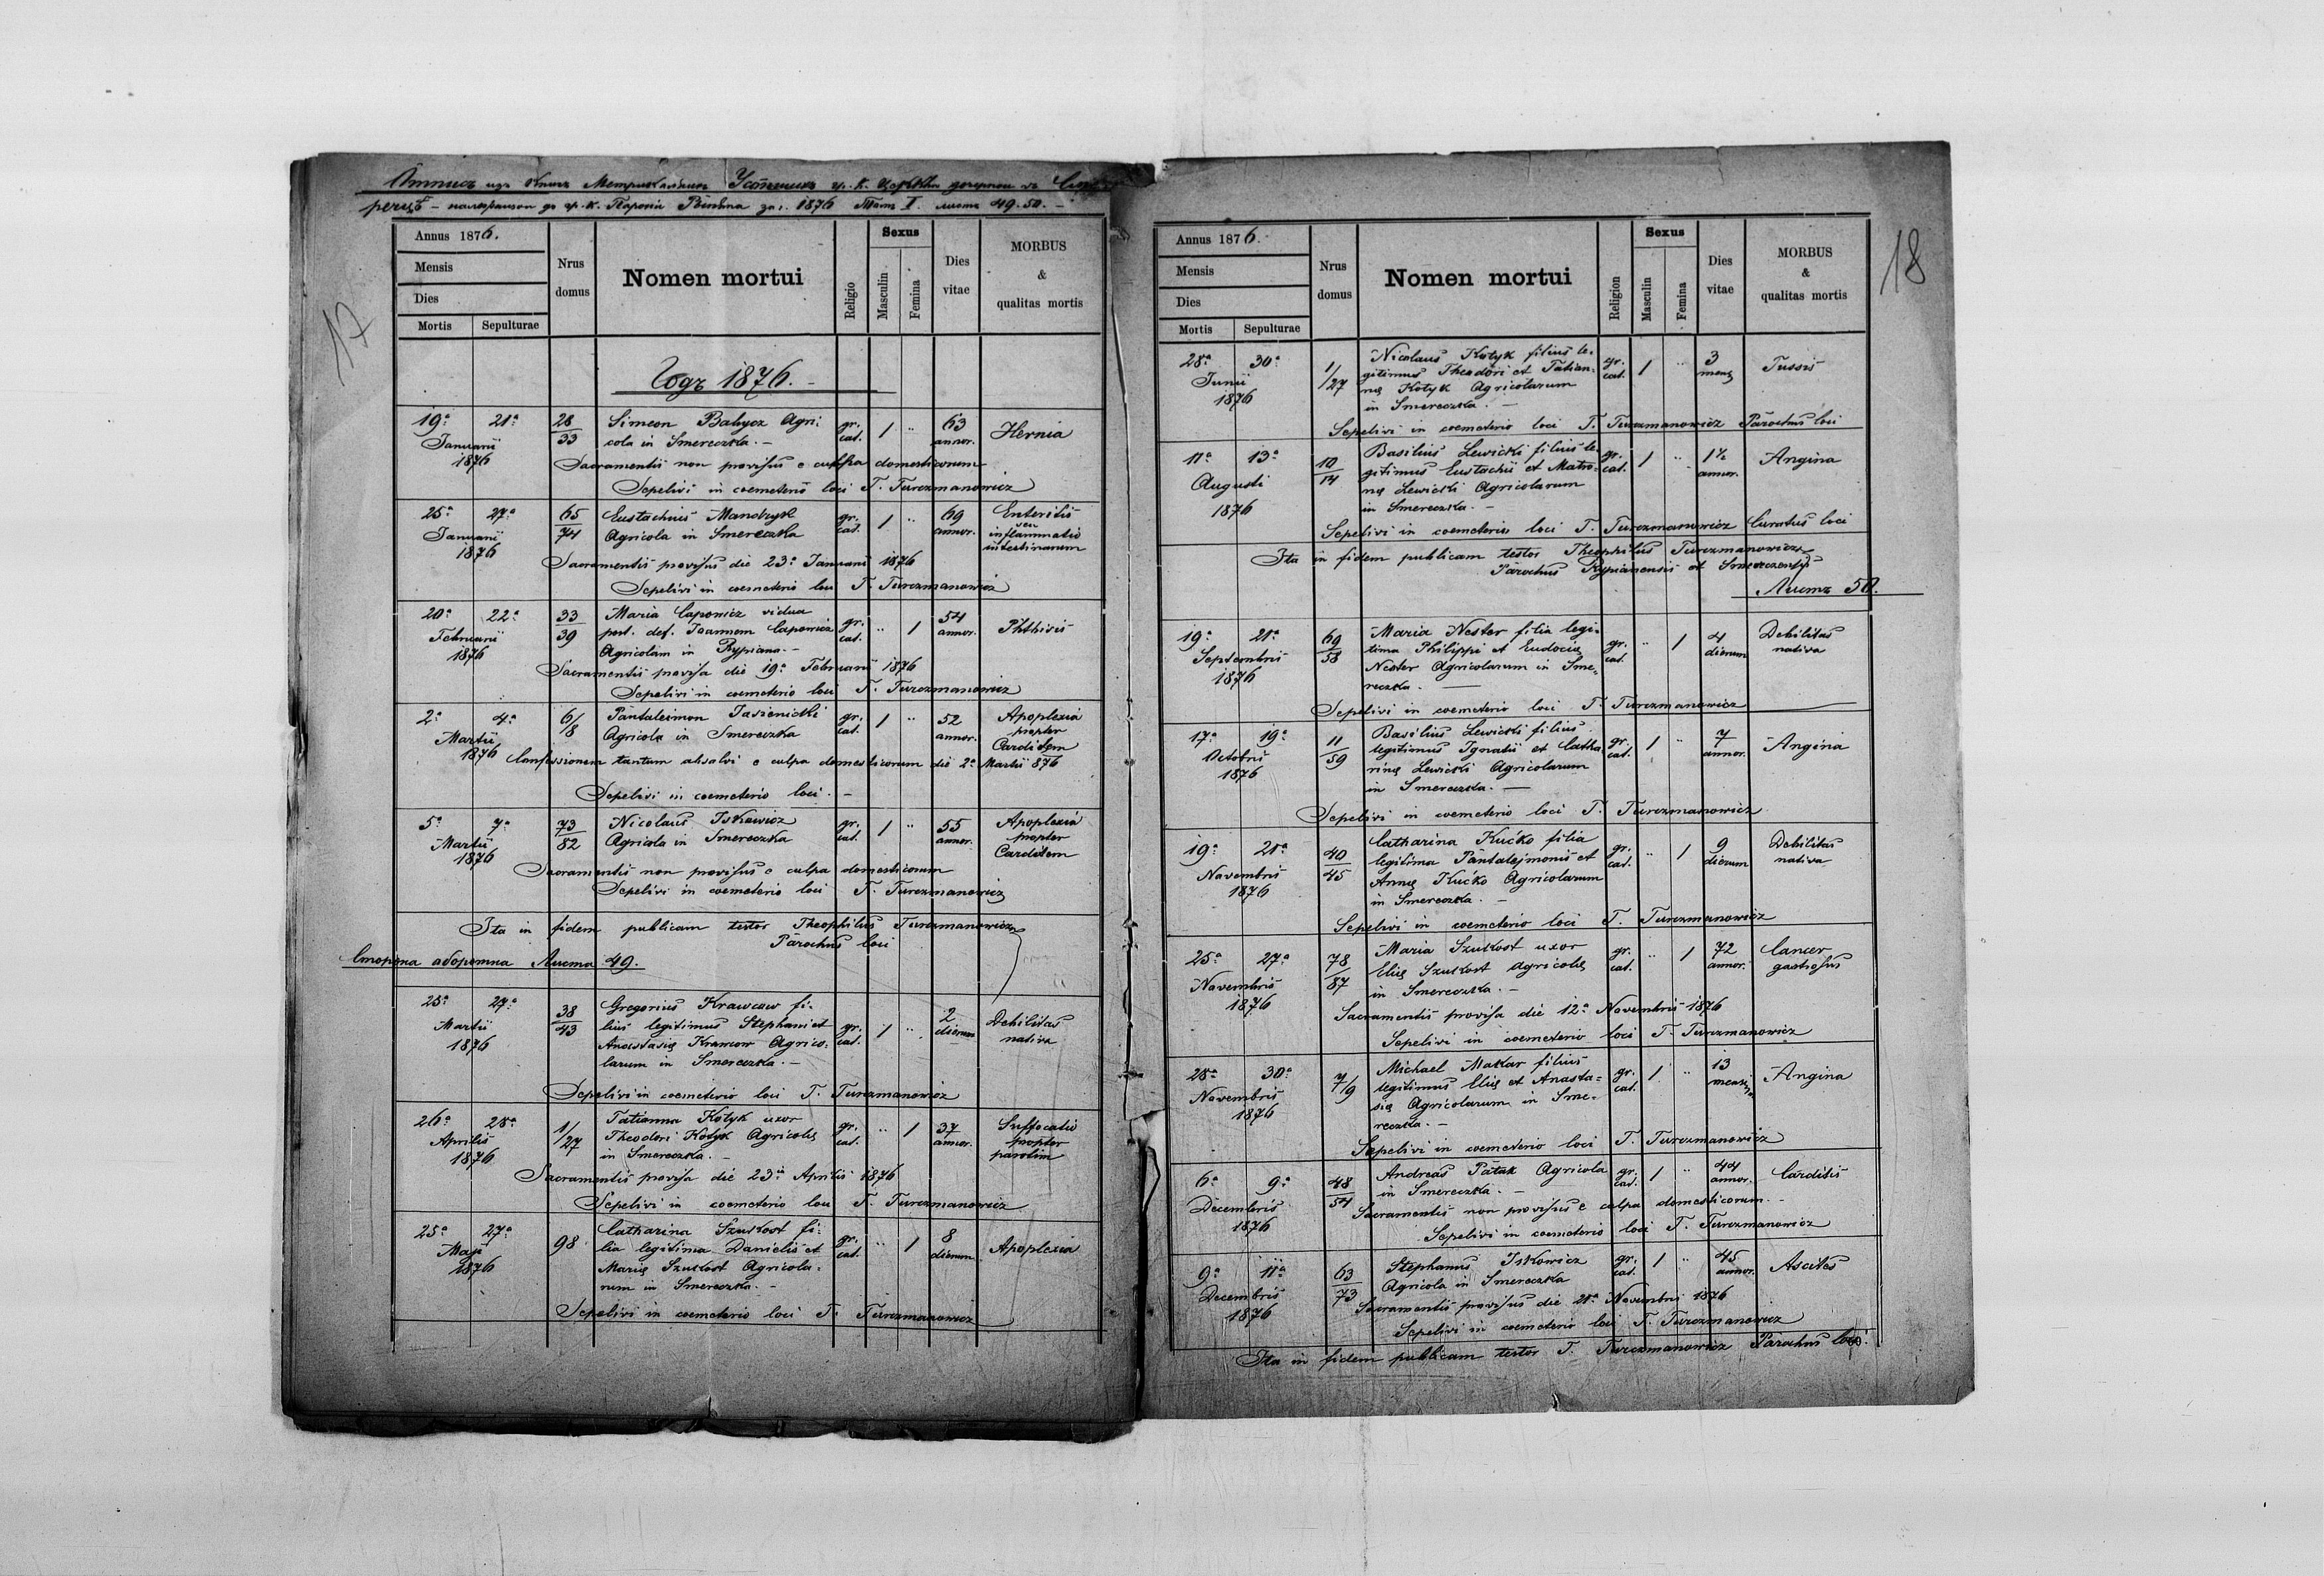 Отписъ изъ Книгъ Метрикальныхъ Усопшихъ гр. к. Церкви дочерной въ
рецѣ – належачои до гр. к. Парохіи Рыпяна за г. 1876 Томъ I. листъ 49. 50. –
17
Annus 1876.
Mensis
Dies
Mortis Sepulturae
Nrus domus
Nomen mortui
Religio
Sexus
Masculin
Femina
Dies vitae
MORBUS
&
qualitas mortis
Годъ 1876. –
19a 21a 28/33 Simeon Babycz Agri- gr. cat. 1 " 63 annor. Hernia
Januarii cola in Smereczka. –
1876 Sacramentis non provisus e culpa domesticorum
Sepelivi in coemeterio loci T. Turczmanowicz
25a 27a 65/74 Eustachius Mandzyk gr. cat. 1 " 69 annor. Enteritis
Januarii Agricola in Smereczka seu inflammatio
1876 intestinarum
Sacramentis provisus die 23a Januarii 1876
Sepelivi in coemeterio loci T. Turczmanowicz
20a 22a 33/39 Maria Capowicz vidua gr. cat. " 1 54 annor. Phthisis
Februarii post. def. Joannem Capowicz
1876 Agricolam in Rypiana. –
Sacramentis provisa die 19a Februarii 1876
Sepelivi in coemeterio loci T. Turczmanowicz
2a 4a 6/8 Pantaleimon Jasienicki gr. cat. 1 " 52 annor. Apoplexia
Martii Agricola in Smereczka propter
Carditem
1876 Confessionem tantum absolvi e culpa domesticorum die 2a Martii 876
Sepelivi in coemeterio loci. –
5a 7a 73/82 Nicolaus Iskowicz gr. cat. 1 " 55 annor. Apoplexia
Martii Agricola in Smereczka propter
1876 Carditem
Sacramentis non provisus e culpa domesticorum
Sepelivi in coemeterio loci T. Turczmanowicz
Ita in fidem publicam testor Theophilus Turczmanowicz
Parochus loci
Сторона оборотна Листа 49.
25a 27a 38/43 Gregorius Krawcow fi- gr. cat. 1 " 2 dierum Debilitas
Martii lius legitimus Stephani et nativa
1876 Anastasię Krawcow Agrico-
larum in Smereczka. –
Sepelivi in coemeterio loci T. Turczmanowicz
26a 28a 1/27 Tatianna Kotyk uxor gr. cat. " 1 37 annor. Suffocatio
Aprilis Theodori Kotyk Agricolę propter
1876 in Smereczka. – parotim
Sacramentis provisa die 23a Aprilis 1876
Sepelivi in coemeterio loci T. Turczmanowicz
25a 27a 98 Catharina Szukost fi- gr. cat. " 1 8 dierum Apoplexia
Maji lia legitima Danielis et
1876 Marię Szukost Agricola-
rum in Smereczka. –
Sepelivi in coemeterio loci T. Turczmanowicz
18
Annus 1876.
Mensis
Dies
Mortis Sepulturae
Nrus domus
Nomen mortui
Religion
Sexus
Masculin
Femina
Dies vitae
MORBUS
&
qualitas mortis
28a 30a 1/27 Nicolaus Kotyk filius le- gr. cat. 1 " 3 mens Tussis
Junii gitimus Theodori et Tatian-
1876 nę Kotyk Agricolarum
in Smereczka. –
Sepelivi in coemeterio loci T. Turczmanowicz Parochus loci
11a 13a 10/14 Basilius Lewicki filius le- gr. cat. 1 " 1½ annor. Angina
Augusti gitimus Eustachii et Matro-
1876 nę Lewicki Agricolarum
in Smereczka. –
Sepelivi in coemeterio loci T. Turczmanowicz Curatus loci
Ita in fidem publicam testor Theophilus Turczmanowicz
Parochus Rypianensis et Smereczensis
Листъ 50.
19a 21a 69/58 Maria Nester filia legi- gr. cat. " 1 4 dierum Debilitas
Septembris tima Philippi et Eudocię nativa
1876 Nester Agricolarum in Sme-
reczka. –
Sepelivi in coemeterio loci T. Turczmanowicz
17a 19a 11/59 Basilius Lewicki filius gr. cat. 1 " 7 annor. Angina
Octobris legitimus Ignatii et Catha-
1876 rinę Lewicki Agricolarum
in Smereczka. –
Sepelivi in coemeterio loci T. Turczmanowicz
19a 21a 40/45 Catharina Kućko filia gr. cat. " 1 9 dierum Debilitas
Novembris legitima Pantalejmonis et nativa
1876 Annę Kućko Agricolarum
in Smereczka. –
Sepelivi in coemeterio loci T. Turczmanowicz
25a 27a 78/87 Maria Szukost uxor gr. cat. " 1 72 annor. Cancer
Novembris Elię Szukost Agricolę gastrosus
1876 in Smereczka. –
Sacramentis provisa die 12a Novembris 1876
Sepelivi in coemeterio loci T. Turczmanowicz
28a 30a 7/9 Michael Makar filius gr. cat. 1 " 13 mensis Angina
Novembris legitimus Elię et Anasta-
1876 się Agricolarum in Sme-
reczka. –
Sepelivi in coemeterio loci T. Turczmanowicz
6a 9a 48/54 Andreas Patak Agricola gr. cat. 1 " 44 annor. Carditis
Decembris in Smereczka. –
1876 Sacramentis non provisus e culpa domesticorum. –
Sepelivi in coemeterio loci T. Turczmanowicz
9a 11a 63/73 Stephanus Iskowicz gr. cat. 1 " 45 annor. Ascites
Decembris Agricola in Smereczka
1876 Sacramentis provisus die 21a Novembris 1876
Sepelivi in coemeterio loci T. Turczmanowicz
Ita in fidem publicam testor T. Turczmanowicz Parochus loci.